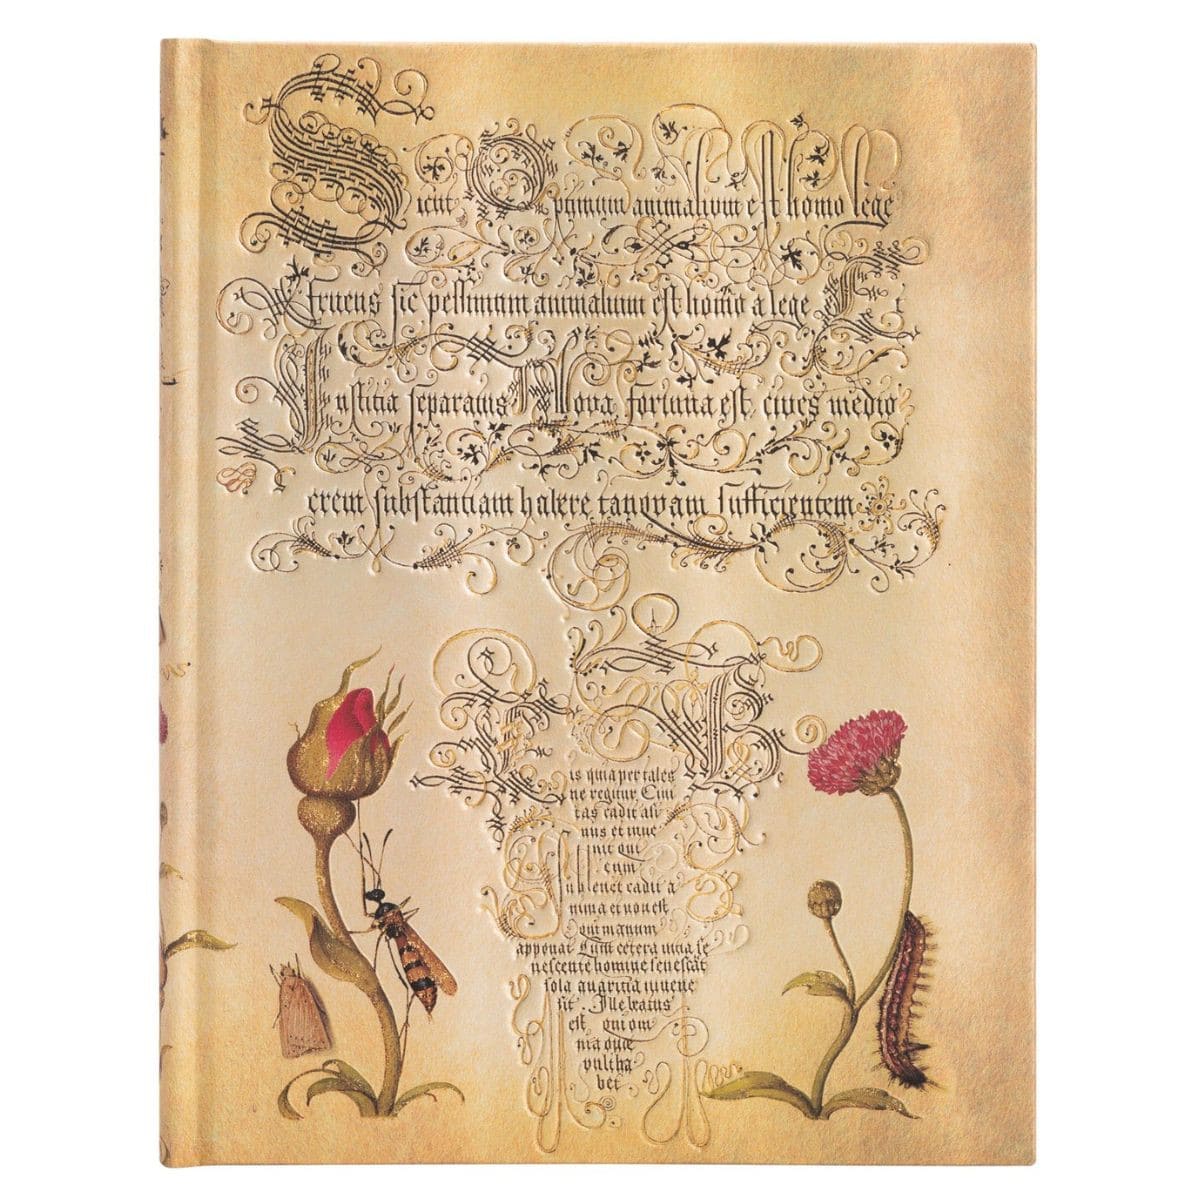 Sicut Optimum animalium est homo lege
fruens sic pessimum animalium est homo a lege Et
Iustitia separatus Nova fortuna est cives medio
crem substantiam habere tanquam sufficientem
Eis quia per tales Be
ne regitur Civi
tas cadit asi
nus et inve
nit qui
eum
Sublevet cadit a
nima et non est
qui manum
apponat Cum cetera vitia se
nescente homine senescāt
sola avaritia iuvene
sit. Ille beatus
est qui om
nia que
vult ha
bet.